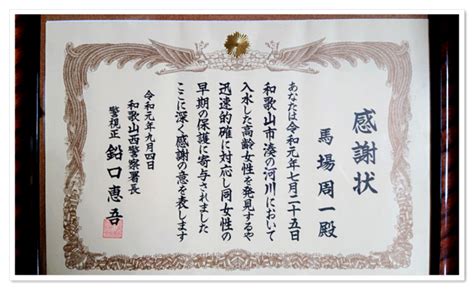 感謝状
馬場周一殿
あなたは令和元年七月二十五日
和歌山市湊の河川において
入水した高齢女性を発見するや
迅速的確に対応し同女性の
早期の保護に寄与されました
ここに深く感謝の意を表します
令和元年九月四日
和歌山西警察署長
警視正 鉛口恵吾